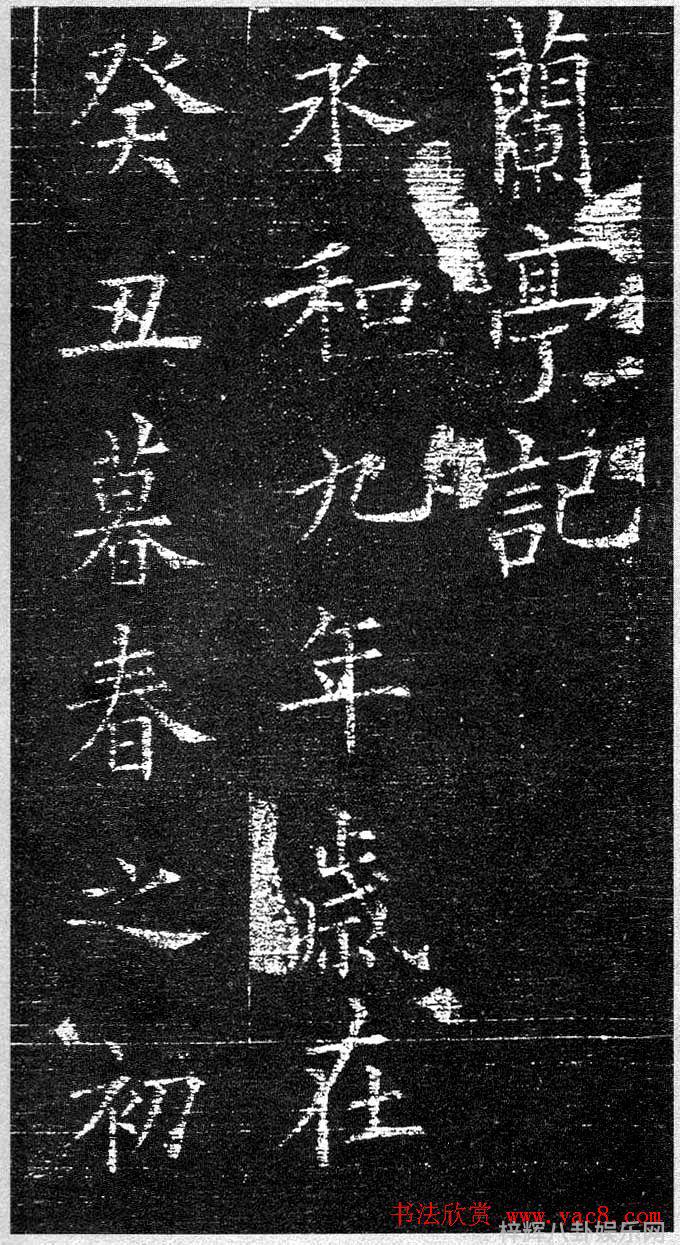 蘭亭記
永和九年歲在
癸丑暮春之初
书法欣赏 www.yac8.com
梓辉八卦娱乐网